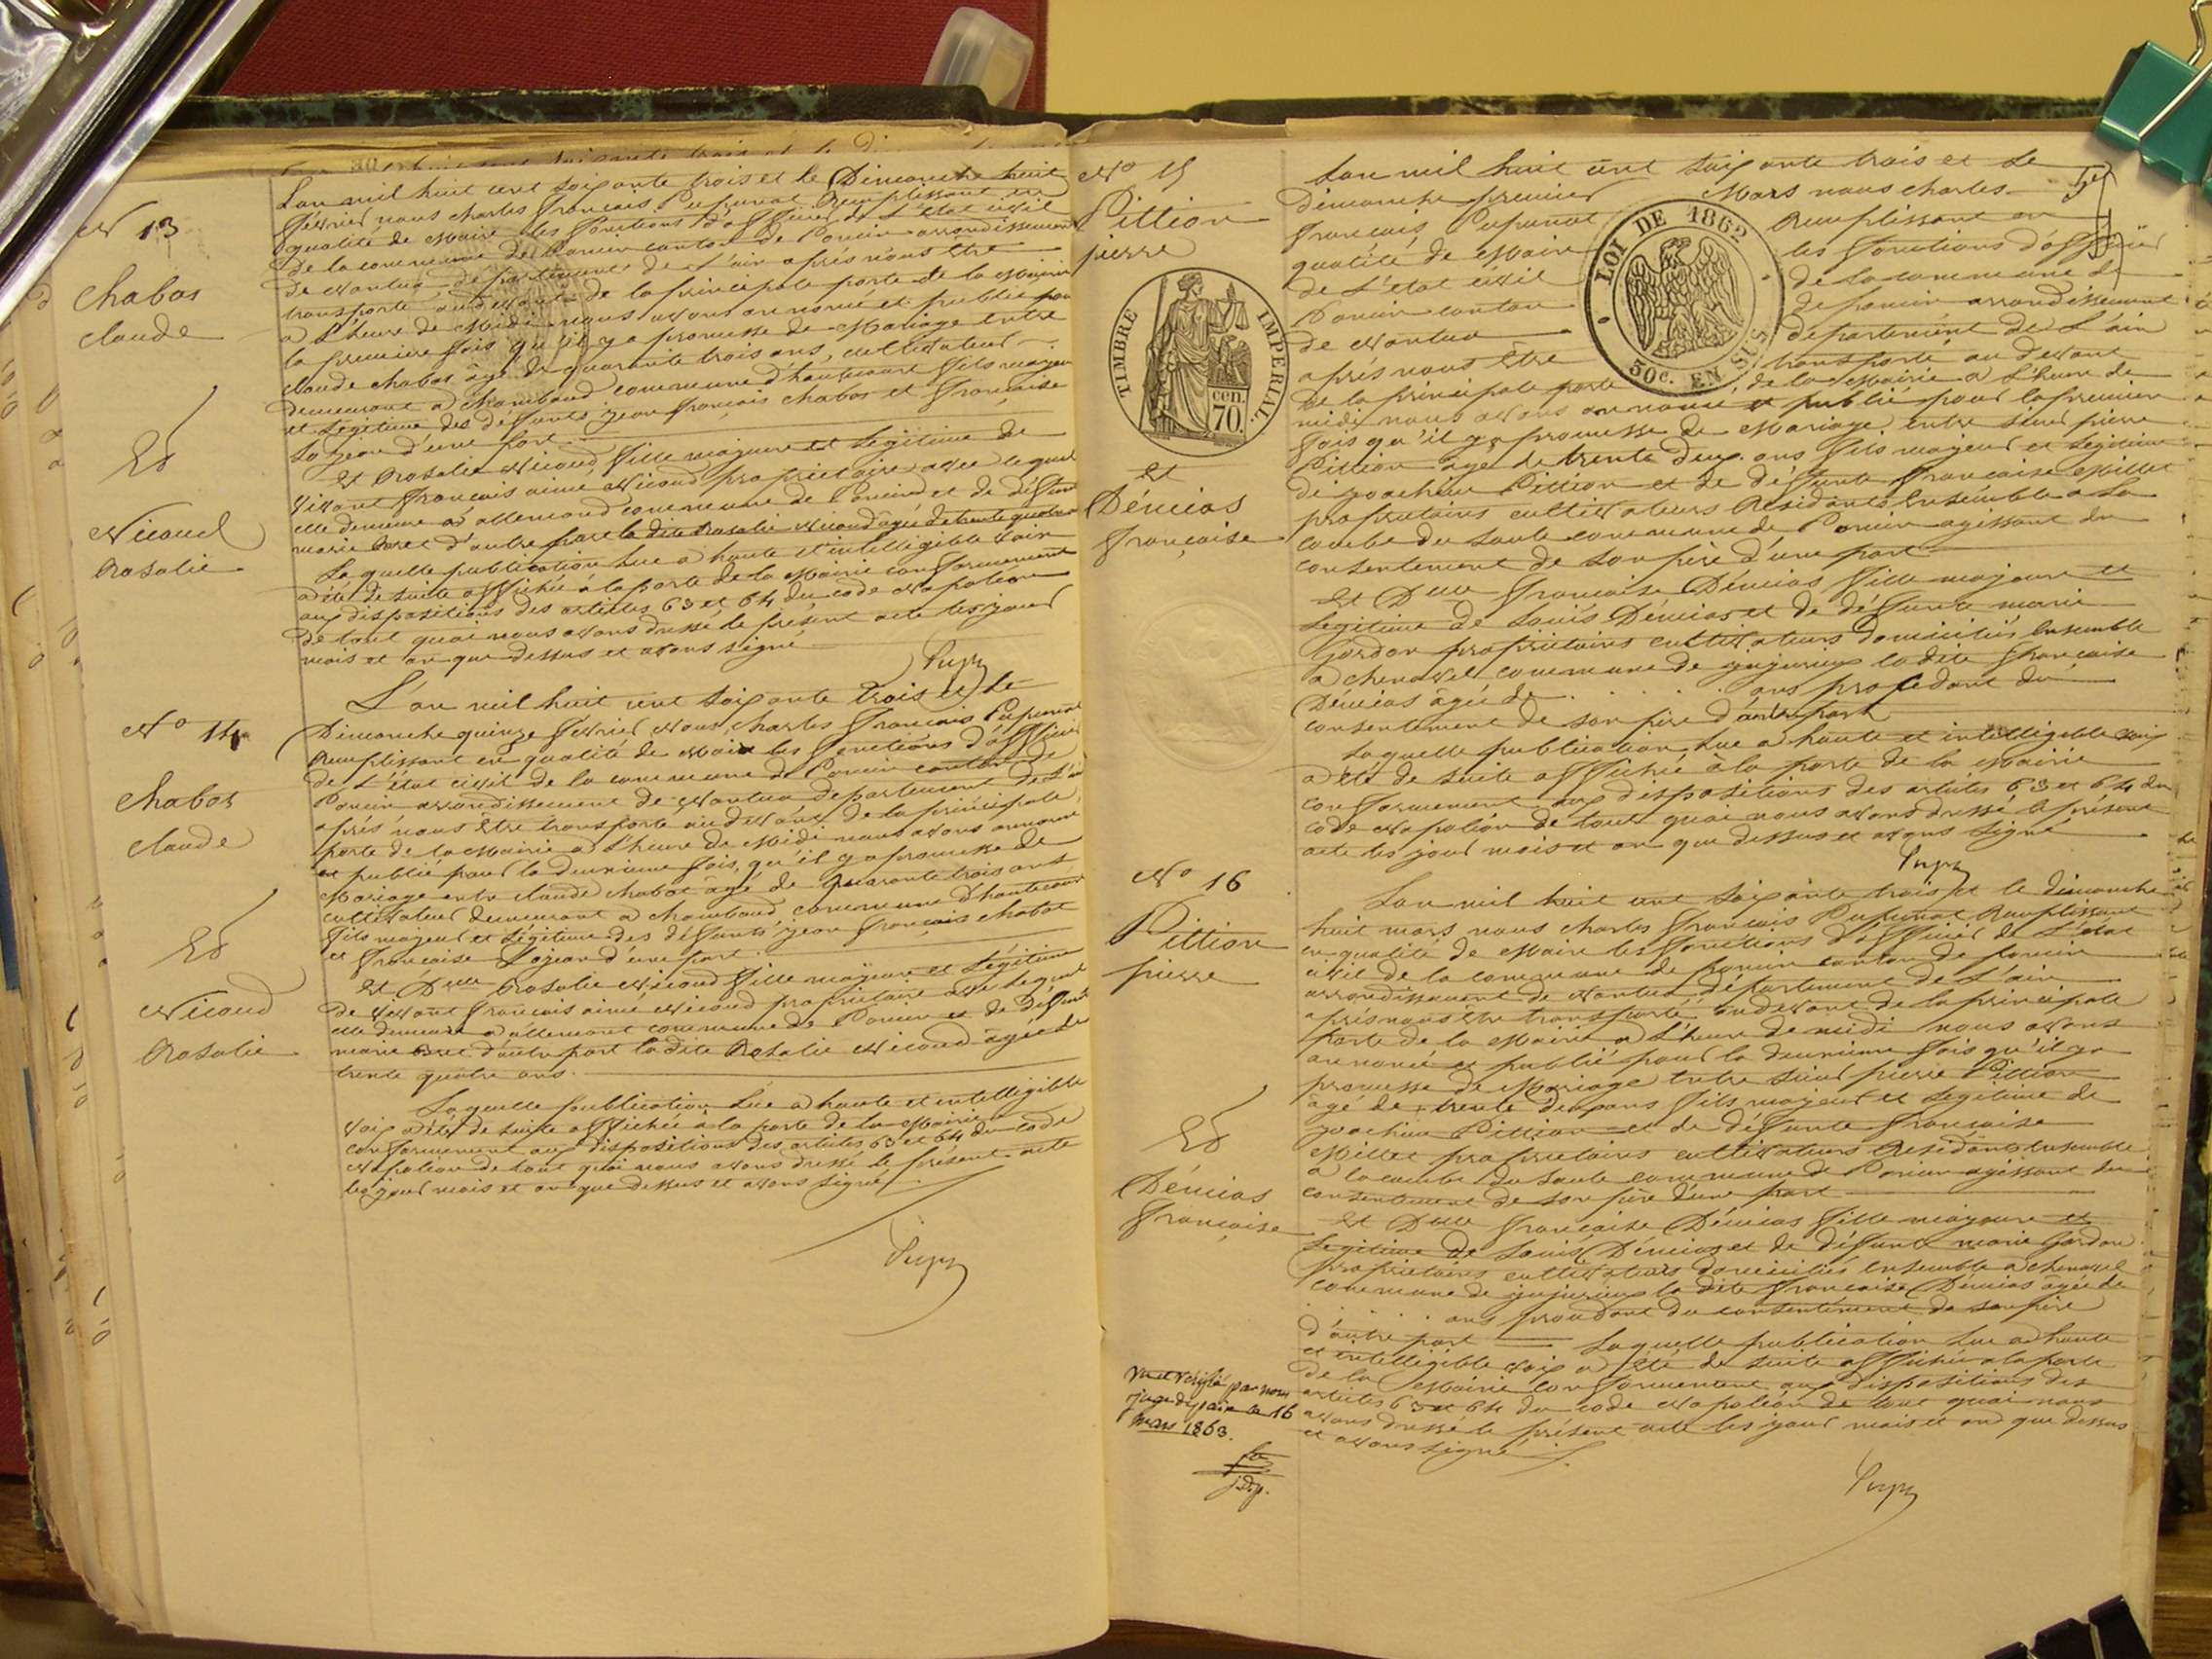 N° 13
Chabos
claude
Et
Nicoud
Rosalie
L'an mil huit cent soixante trois et le Dimanche huit
février nous charles françois Pupunat Remplissant en
qualité de Maire les fonctions d'officier de L'état civil
de la commune de Poncin canton de Poncin arrondissement
de Nantua département de L'ain après nous être
transporté au devant de la principale porte de la Mairie
a L'heure de Midi nous avons annoncé et publié pour
la première fois qu'il y a promesse de Mariage entre
claude chabos âgé de quarante trois ans, cultivateur
demeurant a chambaud commune d'hautecour fils majeur
et Légitime des défunts jean françois chabos et françoise
Lojean d'une part
Et Rosalie Nicoud fille majeure et Légitime de
vivant françois aimé Nicoud propriétaire avec lequel
elle demeure a allemand commune de Poncin et de défunte
marie d'autre part la dite Rosalie Nicoud âgée de trente quatre
Laquelle publication Lue a haute et intelligible voix
a été de suite affichée à la porte de la Mairie conformement
aux dispositions des articles 63 et 64 du code Napoléon
de tout quoi nous avons dressé le présent acte les jour
mois et an que dessus et avons signé
Pupu
N° 14
Chabos
claude
Et
Nicoud
Rosalie
L'an mil huit cent soixante trois et le
Dimanche quinze février Nous charles françois Pupunat
Remplissant en qualité de Maire les fonctions d'officier
de L'état civil de la commune de Poncin canton de
Poncin arrondissement de Nantua département de L'ain
après nous être transporté au devant de la principale
porte de la Mairie a L'heure de Midi nous avons annoncé
et publié pour la deuxième fois, qu'il y a promesse de
Mariage entre claude chabos agé de quarante trois ans
cultivateur demeurant a chambaud commune d'hautecour
fils majeur et Légitime des défunts jean françois chabos
et françoise Lojean d'une part.
Et Dlle Rosalie Nicoud fille majeure et Légitime
de vivant françois aimé Nicoud propriétaire avec lequel
elle demeure a allemant commune de Poncin et de défunte
marie d'autre part la dite Rosalie Nicoud âgée de
trente quatre ans.
Laquelle publication Lue a haute et intelligible
voix a été de suite affichée à la porte de la Mairie
conformement aux dispositions des articles 63 et 64 du code
Napoléon de tout quoi nous avons dressé le présent acte
les jour mois et an que dessus et avons signé
Pupu
N° 15
Pittion
pierre
TIMBRE IMPERIAL
70 cen.
Et
Démias
françoise
LOI DE 1862
50c. EN SUS
L'an mil huit cent soixante trois et Le
dimanche premier Mars nous charles
françois Pupunat Remplissant en
qualité de Maire les fonctions d'officier
de L'état civil de la commune de
Poncin canton de poncin arrondissement
de Nantua département de L'ain
après nous être transporté au devant
de la principale porte de la Mairie a L'heure de
midi nous avons annoncé et publié pour la première
fois qu'il y a promesse de Mariage entre sieur pierre
Pittion âgé de trente deux ans fils majeur et Légitime
de joachim Pittion et de défunte françoise Millet
propriétaires cultivateurs Résidants Ensemble a La
combe du Saule commune de Poncin agissant du
consentement de son père d'une part
Et Dlle françoise Démias fille majeure et
Légitime de Louis Démias et de défunte marie
Gardon propriétaires cultivateurs domiciliés Ensemble
a chenavel commune de jujurieux la dite françoise
Démias âgée de . . . . . ans procédant du
consentement de son père d'autre part
Laquelle publication Lue a haute et intelligible voix
a été de suite affichée à la porte de la Mairie
conformement aux dispositions des articles 63 et 64 du
code Napoléon de tout quoi nous avons dressé le présent
acte les jour mois et an que dessus et avons signé
Pupu
N° 16
Pittion
pierre
Et
Démias
françoise
L'an mil huit cent soixante trois et le dimanche
huit mars nous charles françois Pupunat Remplissant
en qualité de Maire les fonctions d'officier de L'état
civil de la commune de poncin canton de poncin
arrondissement de Nantua département de L'ain
après nous être transporté au devant de la principale
porte de la Mairie a L'heure de midi nous avons
annoncé et publié pour la deuxième fois qu'il y a
promesse de Mariage entre sieur pierre Pittion
âgé de trente deux ans fils majeur et Légitime de
joachim Pittion et de défunte françoise
Millet propriétaires cultivateurs Résidants Ensemble
a la combe du Saule commune de Poncin agissant du
consentement de son père d'une part
Et Dlle françoise Démias fille majeure et
Légitime de Louis Démias et de défunte marie Gardon
propriétaires cultivateurs domiciliés Ensemble a chenavel
commune de jujurieux la dite françoise Démias âgée de
. . . . ans procédant du consentement de son père
d'autre part Laquelle publication Lue a haute
et intelligible voix a été de suite affichée a la porte
de la Mairie conformement aux dispositions des
articles 63 et 64 du code Napoléon de tout quoi nous
avons dressé le présent acte les jour mois et an que dessus
et avons signé
Pupu
Vu et vérifié par nous
juge de paix le 16
mars 1863.